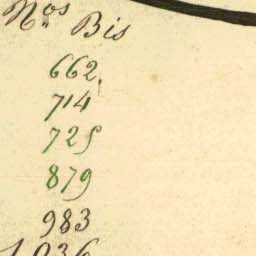 Nos Bis
662.
714
725
879
983
1036